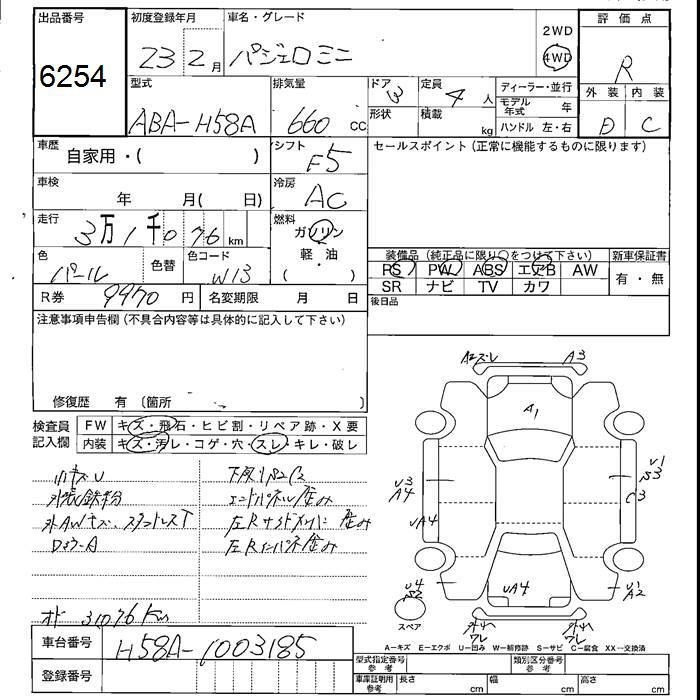 出品番号
6254
初度登録年月
23 2月
車名・グレード
パジェロミニ
2WD
4WD
評価点
R
外装 内装
D C
型式
ABA-H58A
排気量
660 cc
ドア
3
形状
定員
4 人
積載
kg
ディーラー・並行
モデル年式 年
ハンドル 左・右
車歴
自家用・( )
シフト
F5
セールスポイント(正常に機能するものに限ります)
車検
年 月( 日)
冷房
AC
走行
3万1千076 km
燃料
ガソリン
軽・油
( )
色
パール
色替
色コード
W13
装備品(純正品に限り○をつけて下さい)
PS PW ABS エアB AW
SR ナビ TV カワ
新車保証書
有・無
R券 9970 円
名変期限 月 日
後日品
注意事項申告欄(不具合内容等は具体的に記入して下さい)
修復歴 有(箇所 )
検査員記入欄
FW キズ・飛石・ヒビ割・リペア跡・X要
内装 キズ・汚レ・コゲ・穴・スレ・キレ・破レ
小キズU
外AWキズ、
下廻りS2C2
エンドパネル歪み
左Rサイドメンバー歪み
左Rインパネ歪み
オド 31076Km
A2 A3
A1
U3
A4
UA4
U1
C3
UA4
U4
U1
A2
スペア
ワレ ワレ
A-キズ E-エクボ U-凹み W-補修跡 S-サビ C-腐食 XX-交換済
車台番号
H58A-1003185
登録番号
型式指定番号
参考
類別区分番号
参考
車庫証明用
参考
長さ cm
幅 cm
高さ cm